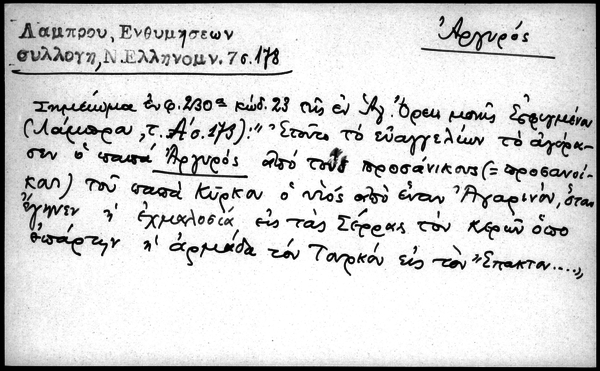 Λαμπρου, Ενθυμησεων
συλλογη, Ν.Ελληνομν. 7 σ. 178
Ἀργυρός
Σημείωμα ἐν φ. 230α κώδ. 23 τῆς ἐν Ἁγ. Ὄρει μονῆς Ἐσφιγμένου
(Λάμπρου, τ. Α' σ. 173): "Ἐτοῦτο τὸ εὐαγγελίων τὸ ἀγόρα-
σεν ὁ παπᾶ Ἀργυρός ἀπὸ τοὺς προσάνικους (= προσανοί-
κους) τοῦ παπᾶ Κύρκου ὁ υἱός ἀπὸ ἕναν Ἀγαρινόν, ὅταν
ἔγηνεν ἡ ἐχμαλοσία εἰς τὰς Σέρρας τὸν κερῶν ὅπο
ἐπάρτην ἡ ἀρμάδα τὸν Τουρκὸν εἰς τὸν Ἔπακτον....,,